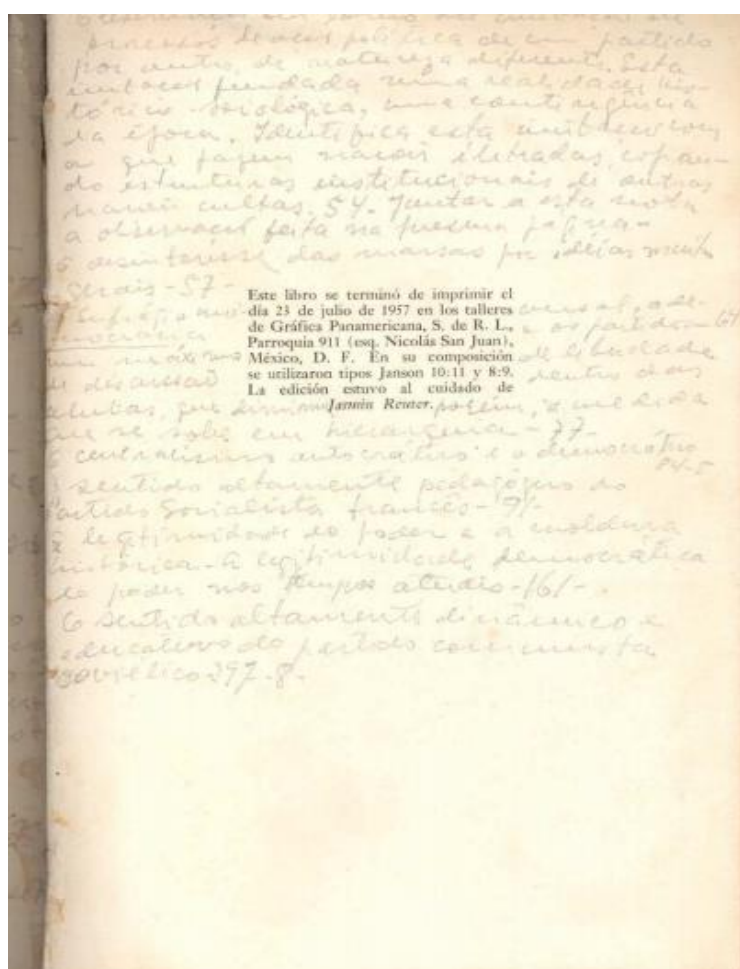 processos de ação política de um partido
por outro, de natureza diferente. Esta
fundada numa realidade his-
tórico-sociológica, uma contingência
da época. Identifica esta imitação com
a que fazem iletradas, copian-
do estruturas institucionais de outras
cultas. 54. Juntar a esta nota
a observação feita na mesma página-
o desinteresse das massas por idéias
gerais-57-
Este libro se terminó de imprimir el
día 23 de julio de 1957 en los talleres
de Gráfica Panamericana, S. de R. L.,
Parroquia 911 (esq. Nicolás San Juan),
México, D. F. En su composición
se utilizaron tipos Janson 10:11 y 8:9.
La edición estuvo al cuidado de
Jasmin Reuter.
e os partidos 64
de liberdade
dentro das
que porém, à medida
que se sobe em hierarquia-77-
O centralismo autocrático e o democrático
84-5
O sentido altamente pedagógico do
Partido Socialista francês-91-
A legitimidade do poder e a moldura
histórica. A legitimidade democrática
do poder nos tempos 161-.
O sentido altamente dinâmico e
educativo do partido comunista
soviético 397-8-